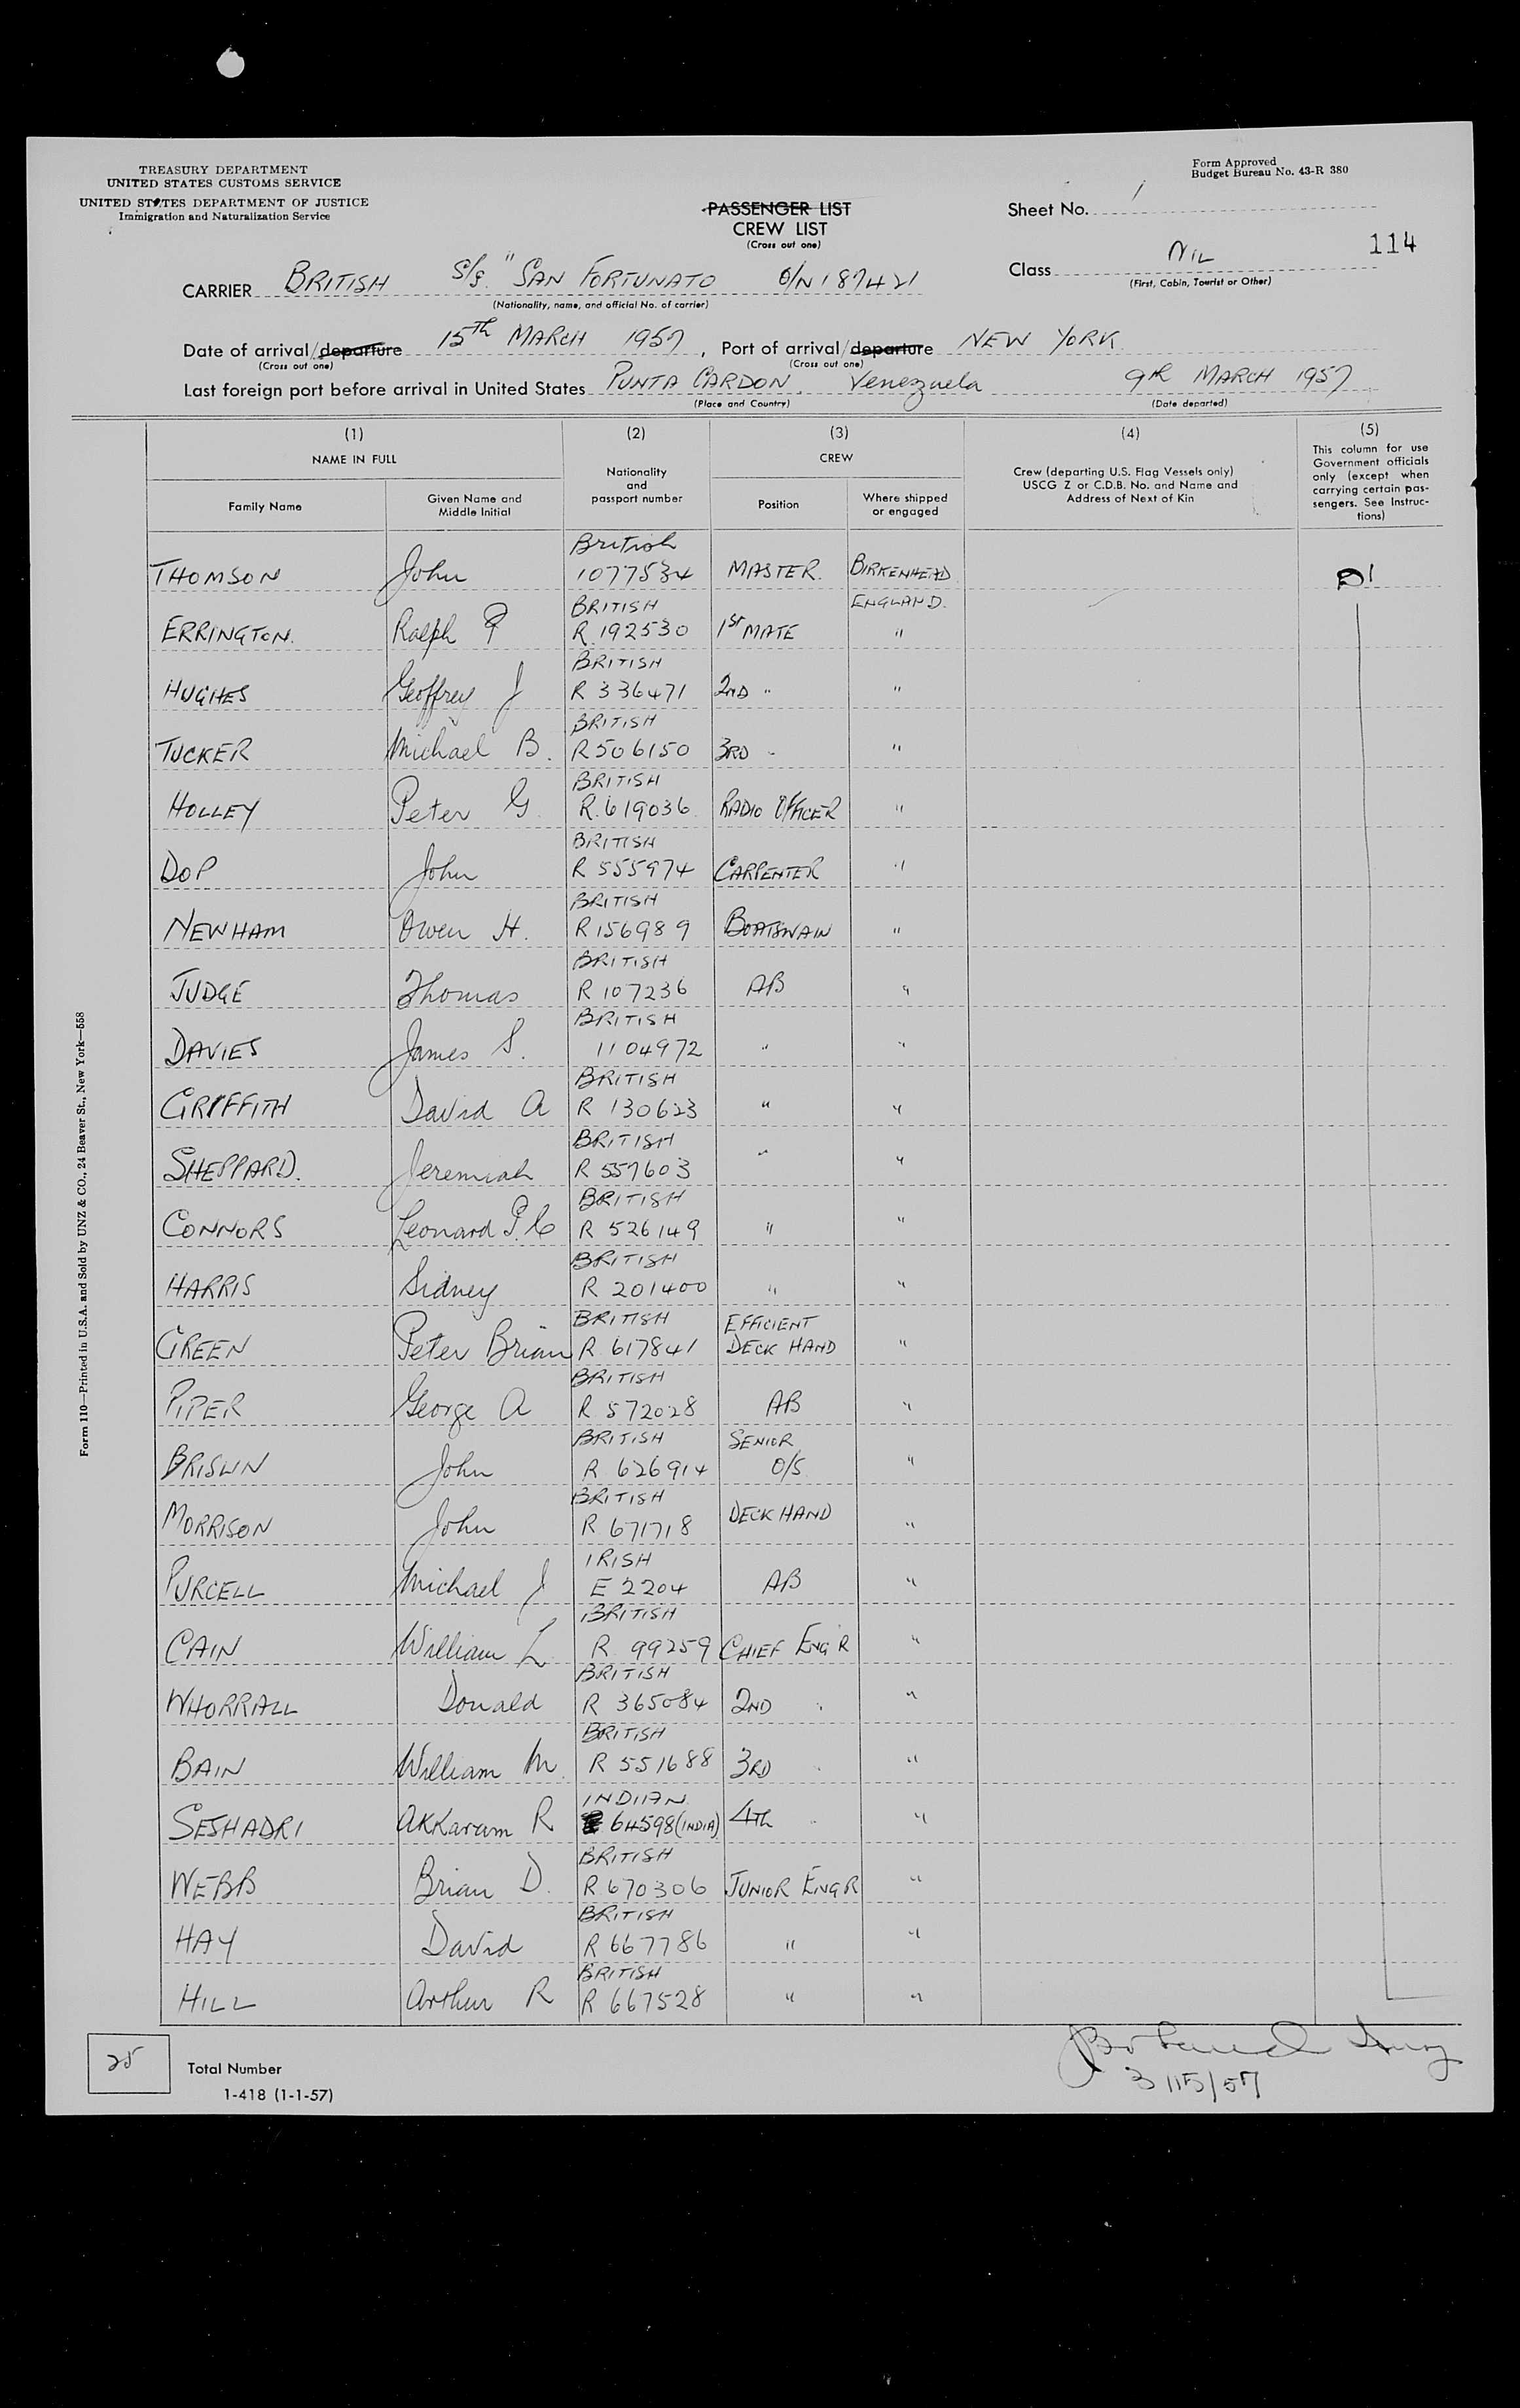 TREASURY DEPARTMENT
UNITED STATES CUSTOMS SERVICE
UNITED STATES DEPARTMENT OF JUSTICE
Immigration and Naturalization Service
Form Approved
Budget Bureau No. 43-R 380
PASSENGER LIST
CREW LIST
(Cross out one)
Sheet No. 1
114
Class NIL
(First, Cabin, Tourist or Other)
CARRIER BRITISH S/S. "SAN FORTUNATO O/N 187421
(Nationality, name, and official No. of carrier)
Date of arrival/departure 15th MARCH 1957, Port of arrival/departure NEW YORK.
(Cross out one) (Cross out one)
Last foreign port before arrival in United States PUNTA CARDON, Venezuela 9th MARCH 1957
(Place and Country) (Date departed)
(1) (2) (3) (4) (5)
NAME IN FULL
Family Name
Given Name and Middle Initial
Nationality and passport number
CREW
Position
Where shipped or engaged
Crew (departing U.S. Flag Vessels only) USCG Z or C.D.B. No. and Name and Address of Next of Kin
This column for use Government officials only (except when carrying certain passengers. See Instructions)
THOMSON John British 1077534 MASTER. BIRKENHEAD ENGLAND. D1
ERRINGTON. Ralph F BRITISH R.192530 1st MATE "
HUGHES Geoffrey J BRITISH R 336471 2ND " "
TUCKER Michael B. BRITISH R506150 3RD " "
HOLLEY Peter G. BRITISH R.619036 RADIO OFFICER "
DOP John BRITISH R 555974 CARPENTER "
NEWHAM Owen H. BRITISH R156989 BOATSWAIN "
JUDGE Thomas BRITISH R 107236 AB "
DAVIES James S. BRITISH 1104972 " "
GRIFFITH David A BRITISH R 130623 " "
SHEPPARD. Jeremiah BRITISH R 557603 " "
CONNORS Leonard P. C BRITISH R 526149 " "
HARRIS Sidney BRITISH R 201400 " "
GREEN Peter Brian BRITISH R 617841 EFFICIENT DECK HAND "
PIPER George A BRITISH R 572028 AB "
BRISLIN John BRITISH R 626914 SENIOR O/S. "
MORRISON John BRITISH R 671718 DECK HAND "
PURCELL Michael J IRISH E 2204 AB "
CAIN William L BRITISH R 99259 CHIEF ENGR "
WHORRALL Donald BRITISH R 365084 2ND " "
BAIN William M. BRITISH R 551688 3RD " "
SESHADRI AKKaram R INDIAN 64598(INDIA) 4TH " "
WEBB Brian D. BRITISH R 670306 JUNIOR ENGR "
HAY David BRITISH R 667786 " "
HILL Arthur R BRITISH R 667528 " "
25 Total Number
1-418 (1-1-57)
3/15/57
Form 110—Printed in U.S.A. and Sold by UNZ & CO., 24 Beaver St., New York—558